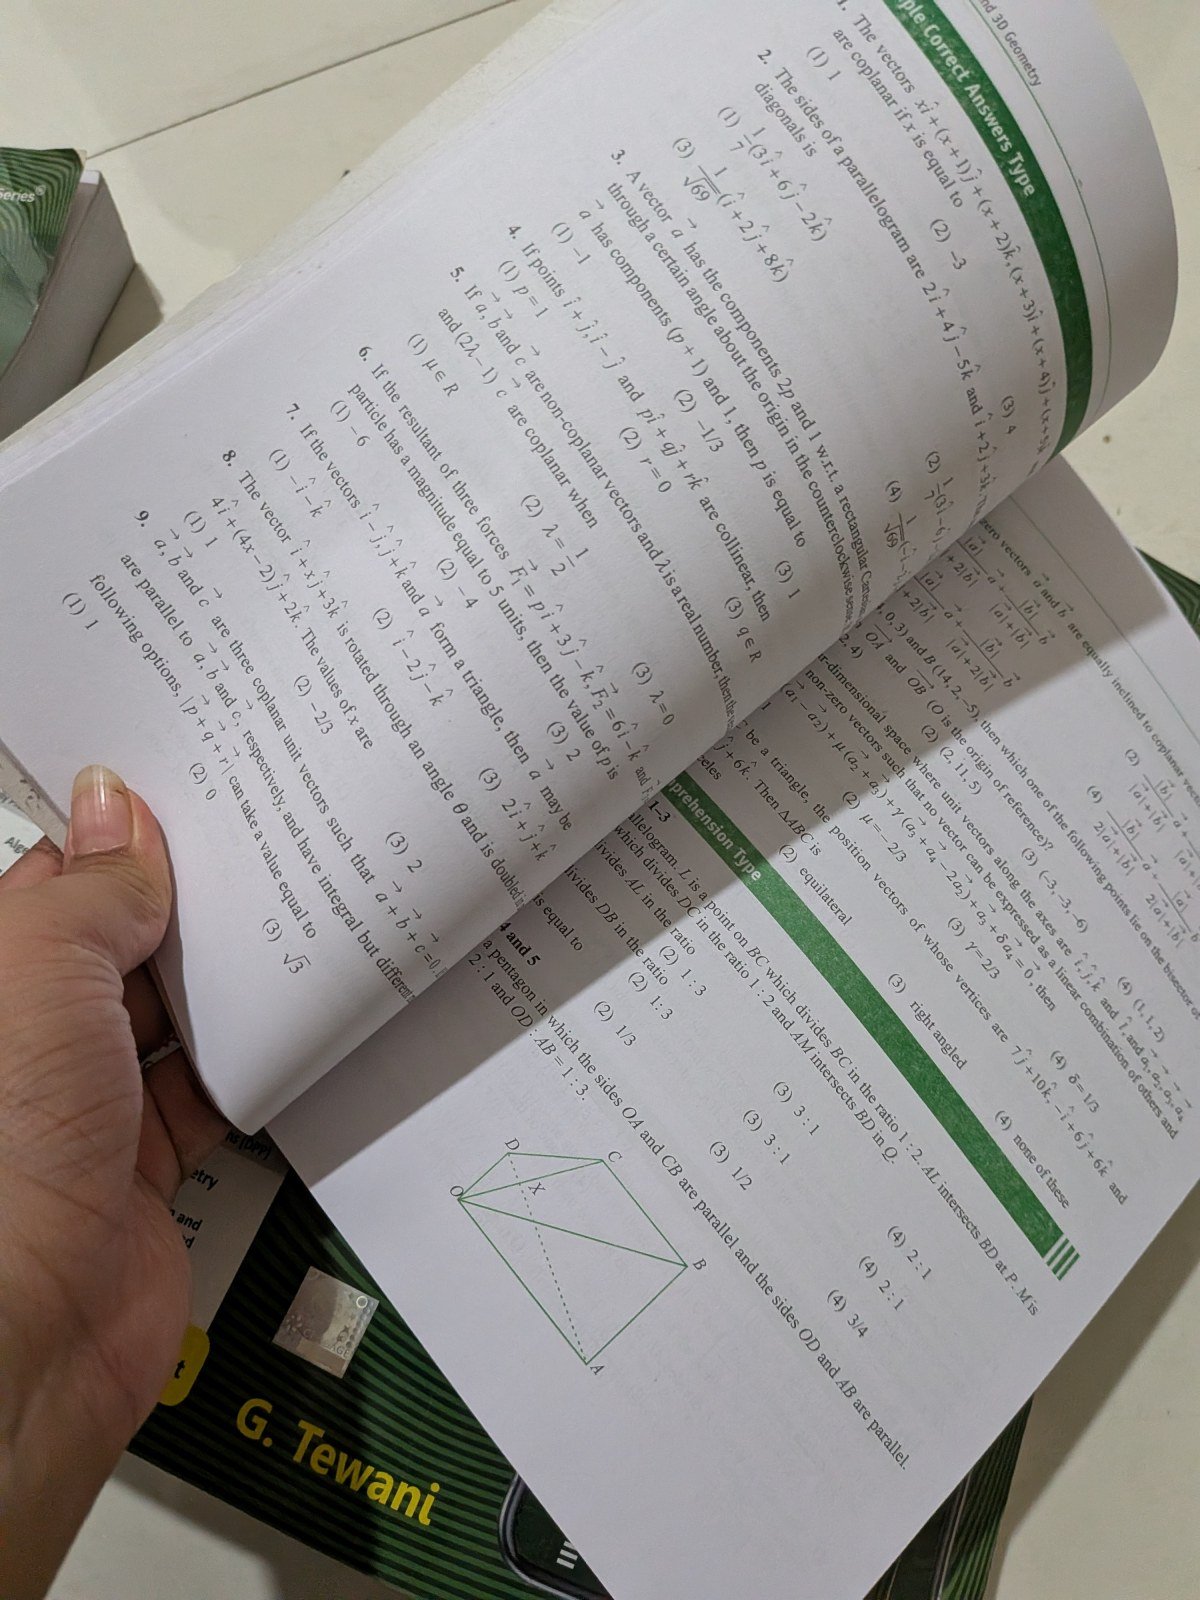 nd 3D Geometry
ple Correct Answers Type
1. The vectors xî + (x + 1)ĵ + (x + 2)k̂, (x + 3)î + (x + 4)ĵ + (x + 5)k̂
are coplanar if x is equal to
(1) 1 (2) –3 (3) 4
2. The sides of a parallelogram are 2î + 4ĵ – 5k̂ and î + 2ĵ + 3k̂.
diagonals is
(1) 1/7(3î + 6ĵ – 2k̂) (2) 1/7(3î – 6ĵ
(3) 1/√69(î + 2ĵ + 8k̂) (4) 1/√69(–î –
3. A vector a⃗ has the components 2p and 1 w.r.t. a rectangular
through a certain angle about the origin in the counterclockwise sense.
a⃗ has components (p + 1) and 1, then p is equal to
(1) –1 (2) –1/3 (3) 1
4. If points î + ĵ, î – ĵ and pî + qĵ + rk̂ are collinear, then
(1) p = 1 (2) r = 0 (3) q ∈ R
5. If a⃗, b⃗ and c⃗ are non-coplanar vectors and λ is a real number, then the
and (2λ – 1) c⃗ are coplanar when
(1) μ ∈ R (2) λ = 1/2 (3) λ = 0
6. If the resultant of three forces F⃗₁ = pî + 3ĵ – k̂, F⃗₂ = 6î – k̂ and
particle has a magnitude equal to 5 units, then the value of p is
(1) –6 (2) –4 (3) 2
7. If the vectors î – ĵ, ĵ + k̂ and a⃗ form a triangle, then a⃗ may be
(1) –î – k̂ (2) î – 2ĵ – k̂ (3) 2î + ĵ + k̂
8. The vector î + xĵ + 3k̂ is rotated through an angle θ and is doubled
4î + (4x – 2)ĵ + 2k̂. The values of x are
(1) 1 (2) –2/3 (3) 2
9. a⃗, b⃗ and c⃗ are three coplanar unit vectors such that a⃗ + b⃗ + c⃗ = 0.
are parallel to a⃗, b⃗ and c⃗, respectively, and have integral but different
following options, |p⃗ + q⃗ + r⃗| can take a value equal to
(1) 1 (2) 0 (3) √3
zero vectors a⃗ and b⃗ are equally inclined to coplanar
, 0, 3) and B (14, 2, –5), then which one of the following points lie on the bisector of
OA⃗ and OB⃗ (O is the origin of reference)?
2, 4) (2) (2, 11, 5) (3) (–3, –3, –6) (4) (1, 1, 2)
r-dimensional space where unit vectors along the axes are î, ĵ, k̂ and l̂, and a⃗₁, a⃗₂, a⃗₃, a⃗₄
non-zero vectors such that no vector can be expressed as a linear combination of others and
(a⃗₁ – a⃗₂) + μ (a⃗₂ + a⃗₃) + γ (a⃗₃ + a⃗₄ – 2a⃗₂) + a⃗₃ + δa⃗₄ = 0⃗, then
1 (2) μ = –2/3 (3) γ = 2/3 (4) δ = 1/3
be a triangle, the position vectors of whose vertices are 7ĵ + 10k̂, –î + 6ĵ + 6k̂ and
ĵ + 6k̂. Then ΔABC is
eles (2) equilateral (3) right angled (4) none of these
prehension Type
1–3
llelogram. L is a point on BC which divides BC in the ratio 1 : 2. AL intersects BD at P. M is
which divides DC in the ratio 1 : 2 and AM intersects BD in Q.
ivides AL in the ratio
(2) 1 : 3 (3) 3 : 1 (4) 2 : 1
ivides DB in the ratio
(2) 1 : 3 (3) 3 : 1 (4) 2 : 1
is equal to
(2) 1/3 (3) 1/2 (4) 3/4
4 and 5
a pentagon in which the sides OA and CB are parallel and the sides OD and AB are parallel.
2 : 1 and OD : AB = 1 : 3.
D
C
X
O
B
A
Series®
etry
and
t
G. Tewani